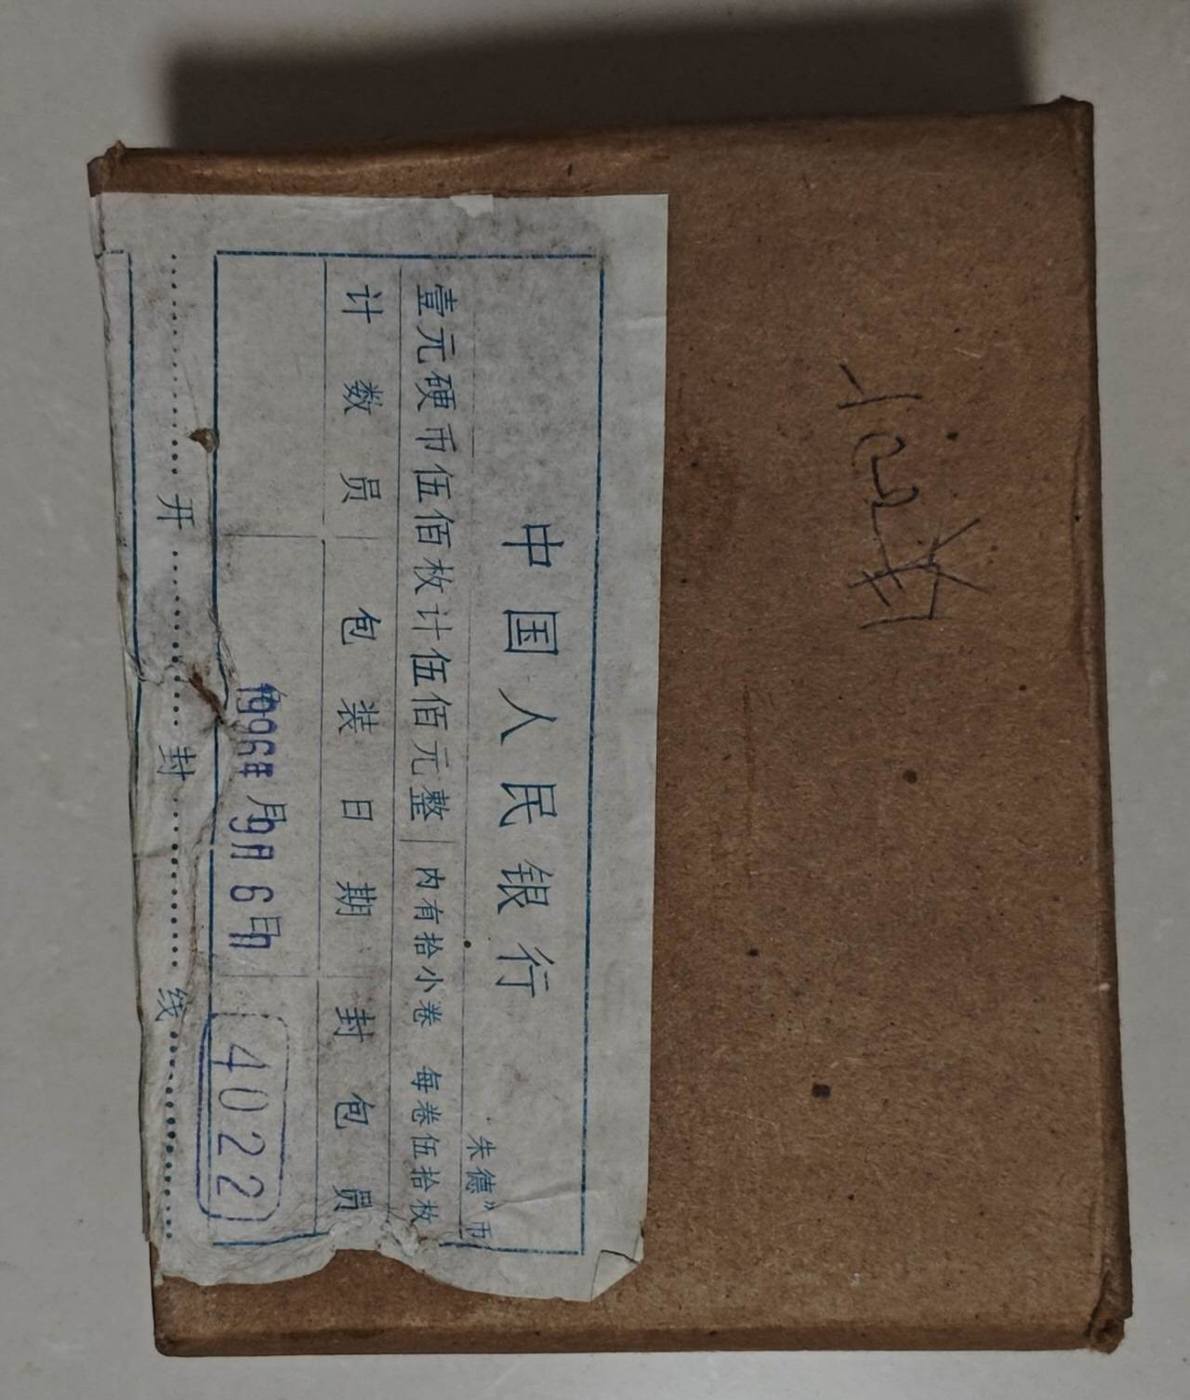 中国人民银行
朱德”币
壹元硬币伍佰枚计伍佰元整 内有拾小卷 每卷伍拾枚
计数员 包装日期 封包员
1996年9月6日 4022
开 封 线